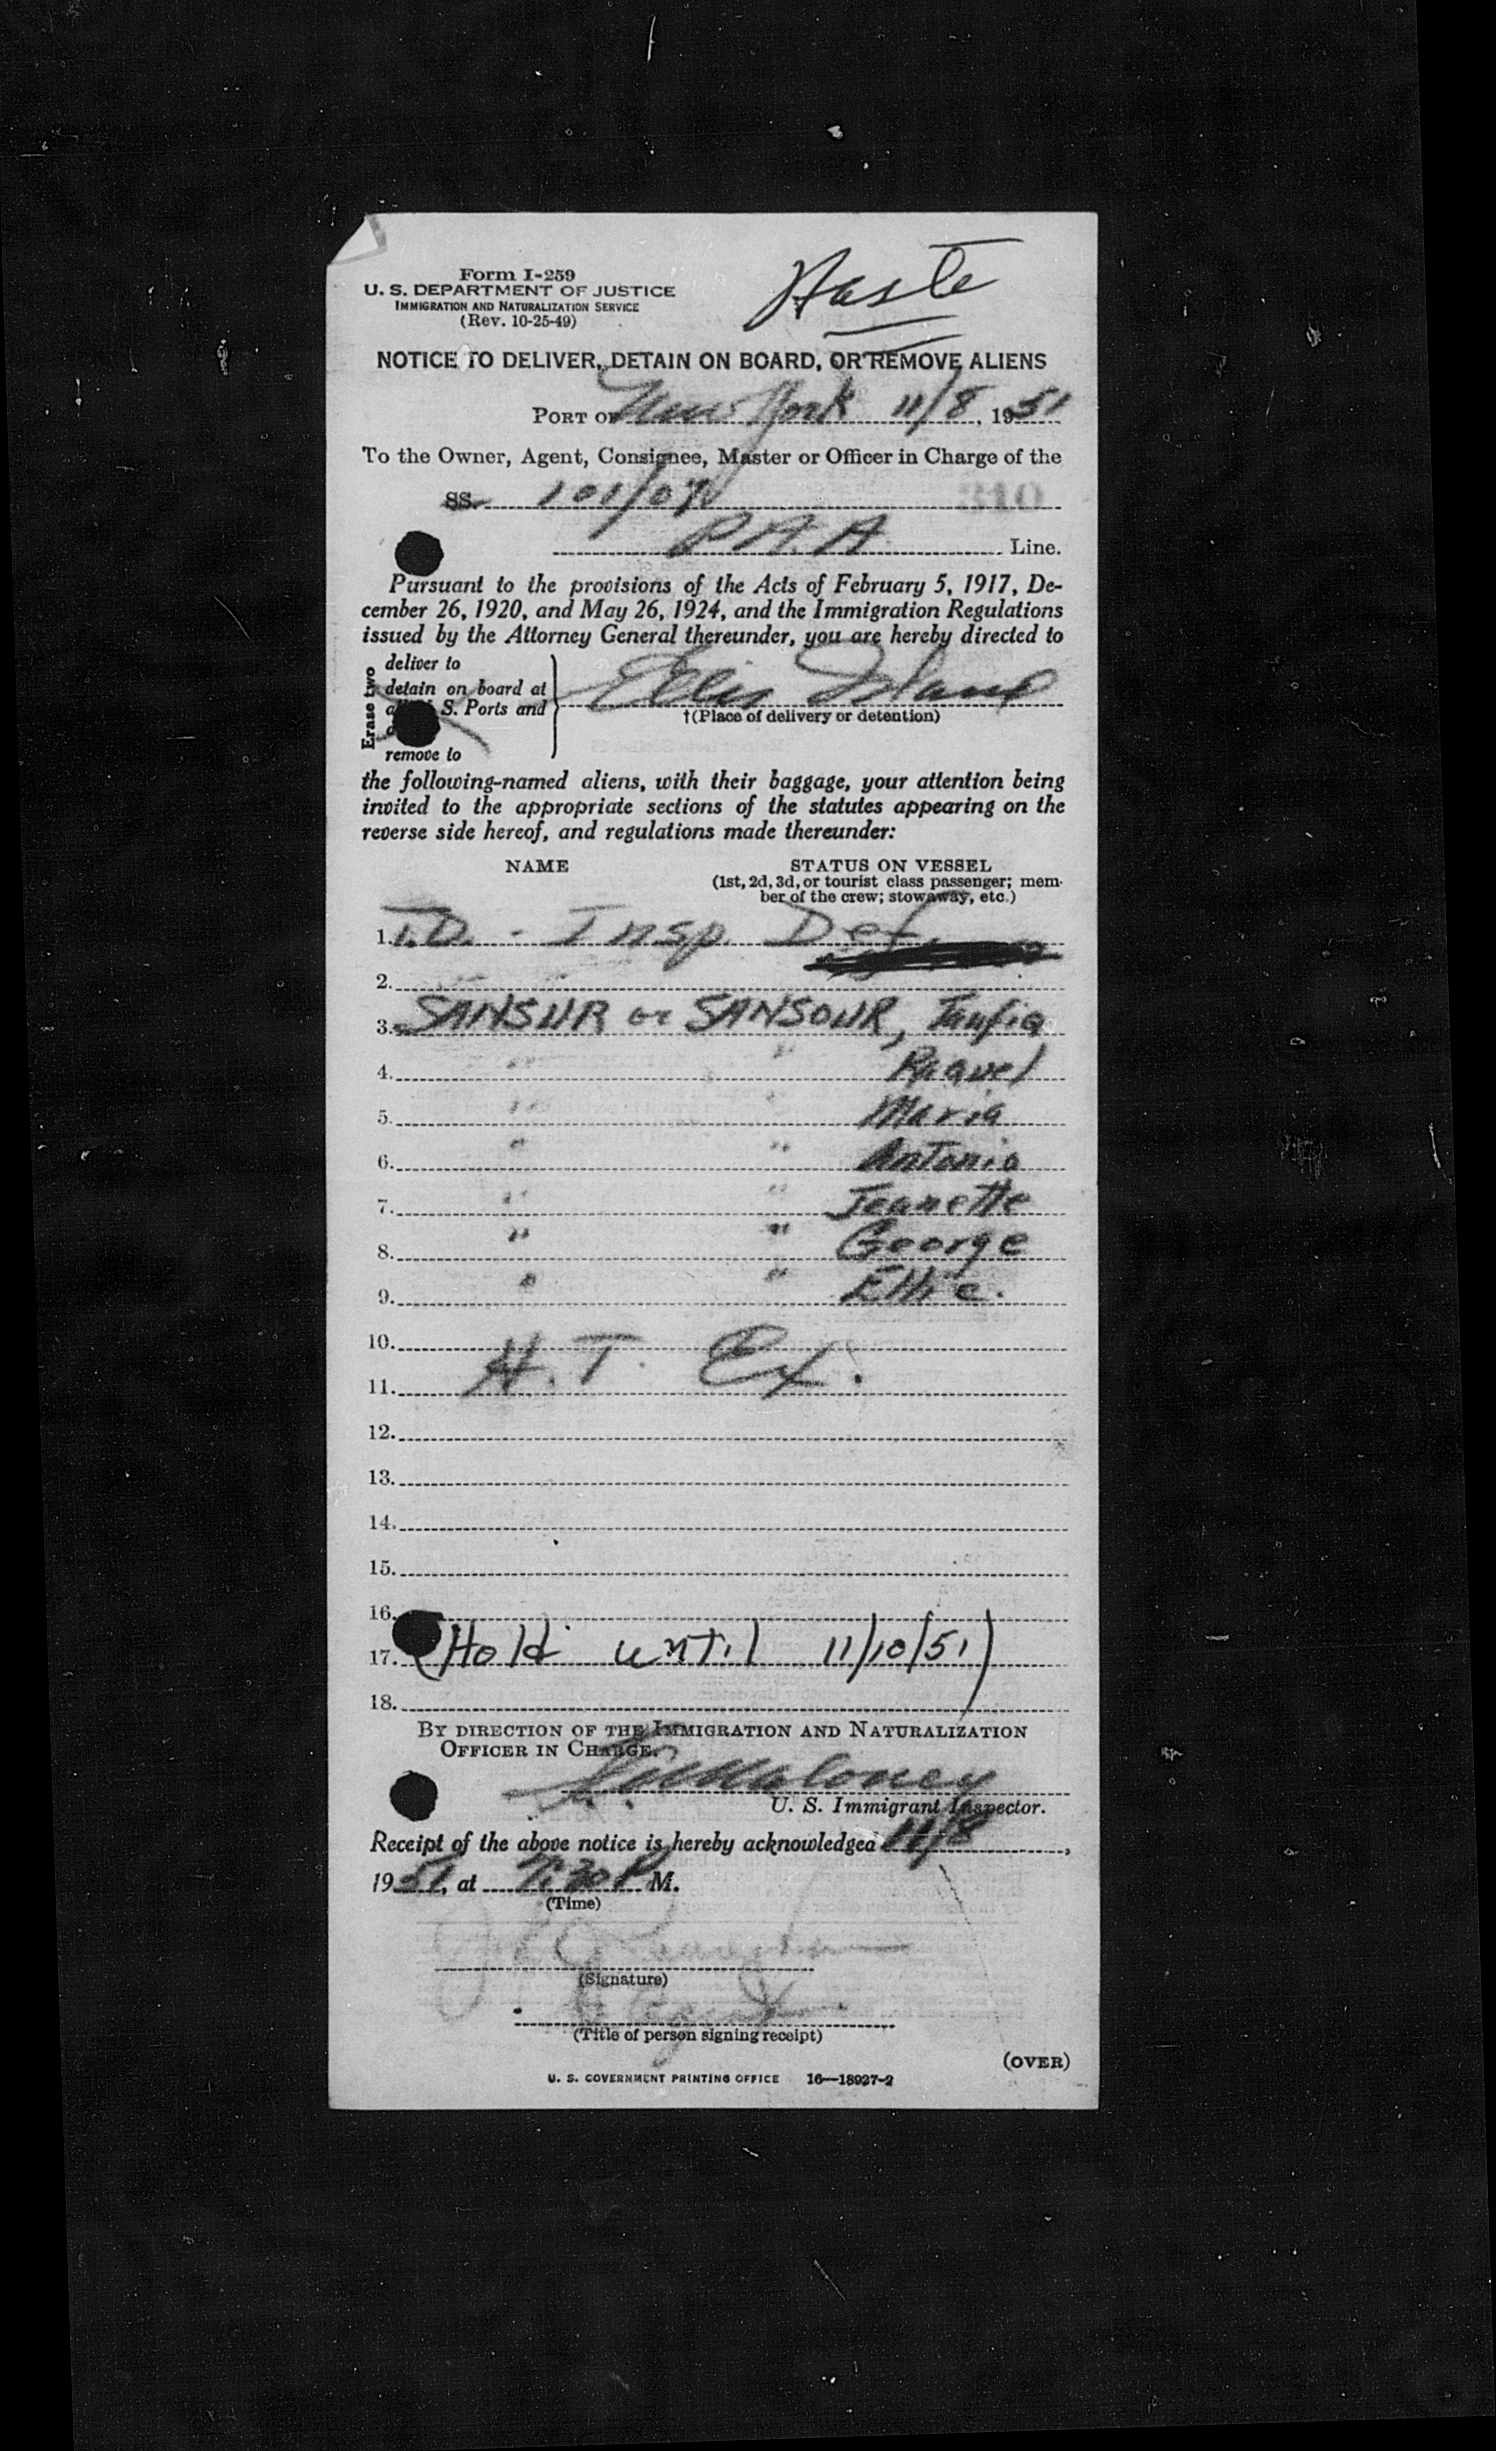 Form I-259
U. S. DEPARTMENT OF JUSTICE
IMMIGRATION AND NATURALIZATION SERVICE
(Rev. 10-25-49)
Haste
NOTICE TO DELIVER, DETAIN ON BOARD, OR REMOVE ALIENS
PORT OF New York 11/8, 1951
To the Owner, Agent, Consignee, Master or Officer in Charge of the
SS. 101/07 310
P.A.A Line.
Pursuant to the provisions of the Acts of February 5, 1917, De-
cember 26, 1920, and May 26, 1924, and the Immigration Regulations
issued by the Attorney General thereunder, you are hereby directed to
Erase two
deliver to
detain on board at
S. Ports and
remove to
Ellis Island
†(Place of delivery or detention)
the following-named aliens, with their baggage, your attention being
invited to the appropriate sections of the statutes appearing on the
reverse side hereof, and regulations made thereunder:
NAME STATUS ON VESSEL
(1st, 2d, 3d, or tourist class passenger; mem-
ber of the crew; stowaway, etc.)
1. T.D. - Insp. Def.
2.
3. SANSUR or SANSOUR, Taufia
4. " " Raquel
5. " " Maria
6. " " Antonio
7. " " Jeanette
8. " " George
9. " " Ellie.
10.
11. H. T. Ex.
12.
13.
14.
15.
16.
17. (Hold until 11/10/51)
18.
BY DIRECTION OF THE IMMIGRATION AND NATURALIZATION
OFFICER IN CHARGE.
Maloney
U. S. Immigrant Inspector.
Receipt of the above notice is hereby acknowledged 11/8,
1951, at 7:30 P M.
(Time)
(Signature)
Agent
(Title of person signing receipt)
(OVER)
U. S. GOVERNMENT PRINTING OFFICE 16—18927-2